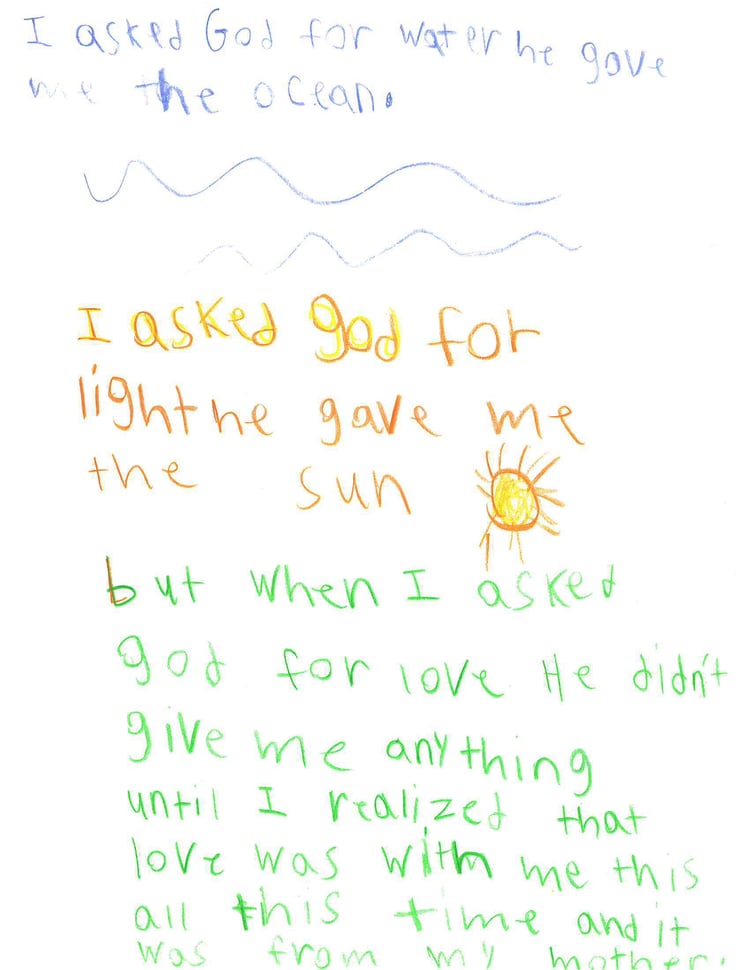 I asked God for water he gave
me the ocean.
I asked god for
light he gave me
the sun
but when I asked
god for love He didn't
give me anything
until I realized that
love was with me this
all this time and it
was from my mother.